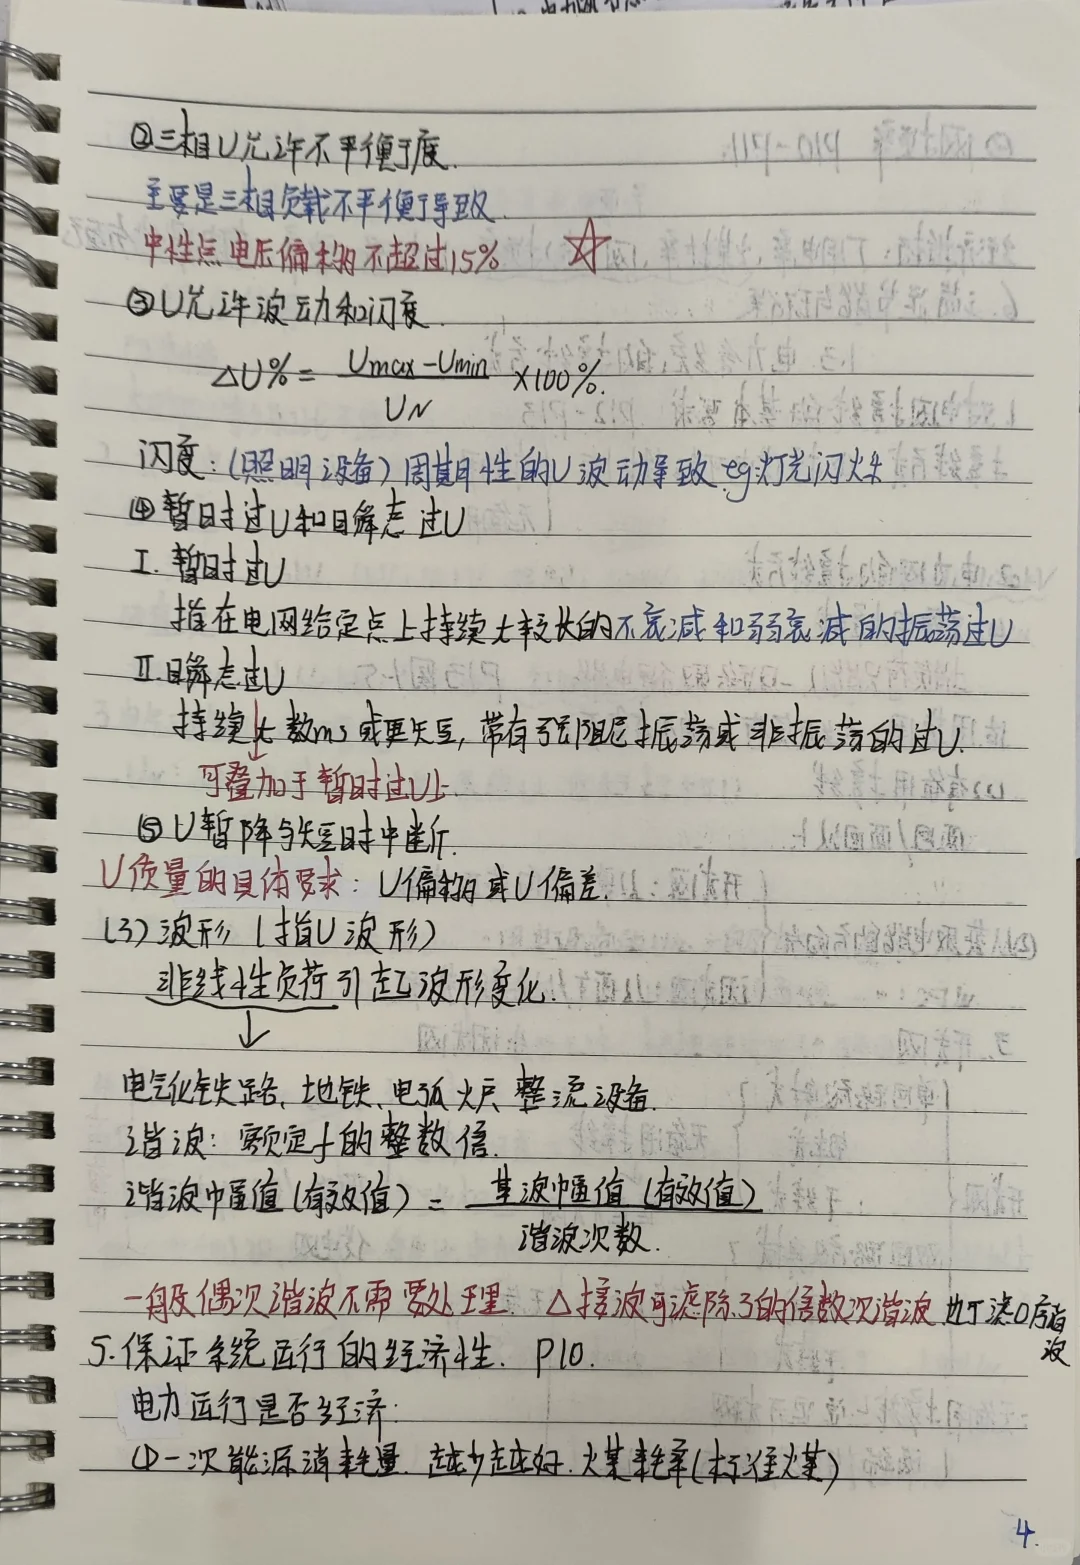 ②三相U允许不平衡度.
主要是三相负载不平衡导致.
中性点电压偏移不超过15% ☆
③U允许波动和闪变.
△U% = (Umax-Umin)/UN ×100%.
闪变:(照明设备)周期性的U波动导致 eg灯光闪烁
④暂时过U和瞬态过U
I. 暂时过U
指在电网给定点上持续t较长的不衰减和弱衰减的振荡过U
II.瞬态过U
持续t数ms或更短,带有强阻尼振荡或非振荡的过U.
↓
可叠加于暂时过U上.
⑤U暂降与短时中断.
U质量的具体要求: U偏移或U偏差.
(3)波形(指U波形)
非线性负荷引起波形变化.
↓
电气化铁路、地铁、电弧炉、整流设备.
谐波: 额定f的整数倍.
谐波幅值(有效值) = 基波幅值(有效值)/谐波次数.
一般偶次谐波不需要处理. △接波可滤除3的倍数次谐波 也可滤0序谐波
5.保证系统运行的经济性. P10.
电力运行是否经济:
①一次能源消耗量. 越少越好. 煤耗率(标准煤)
4.